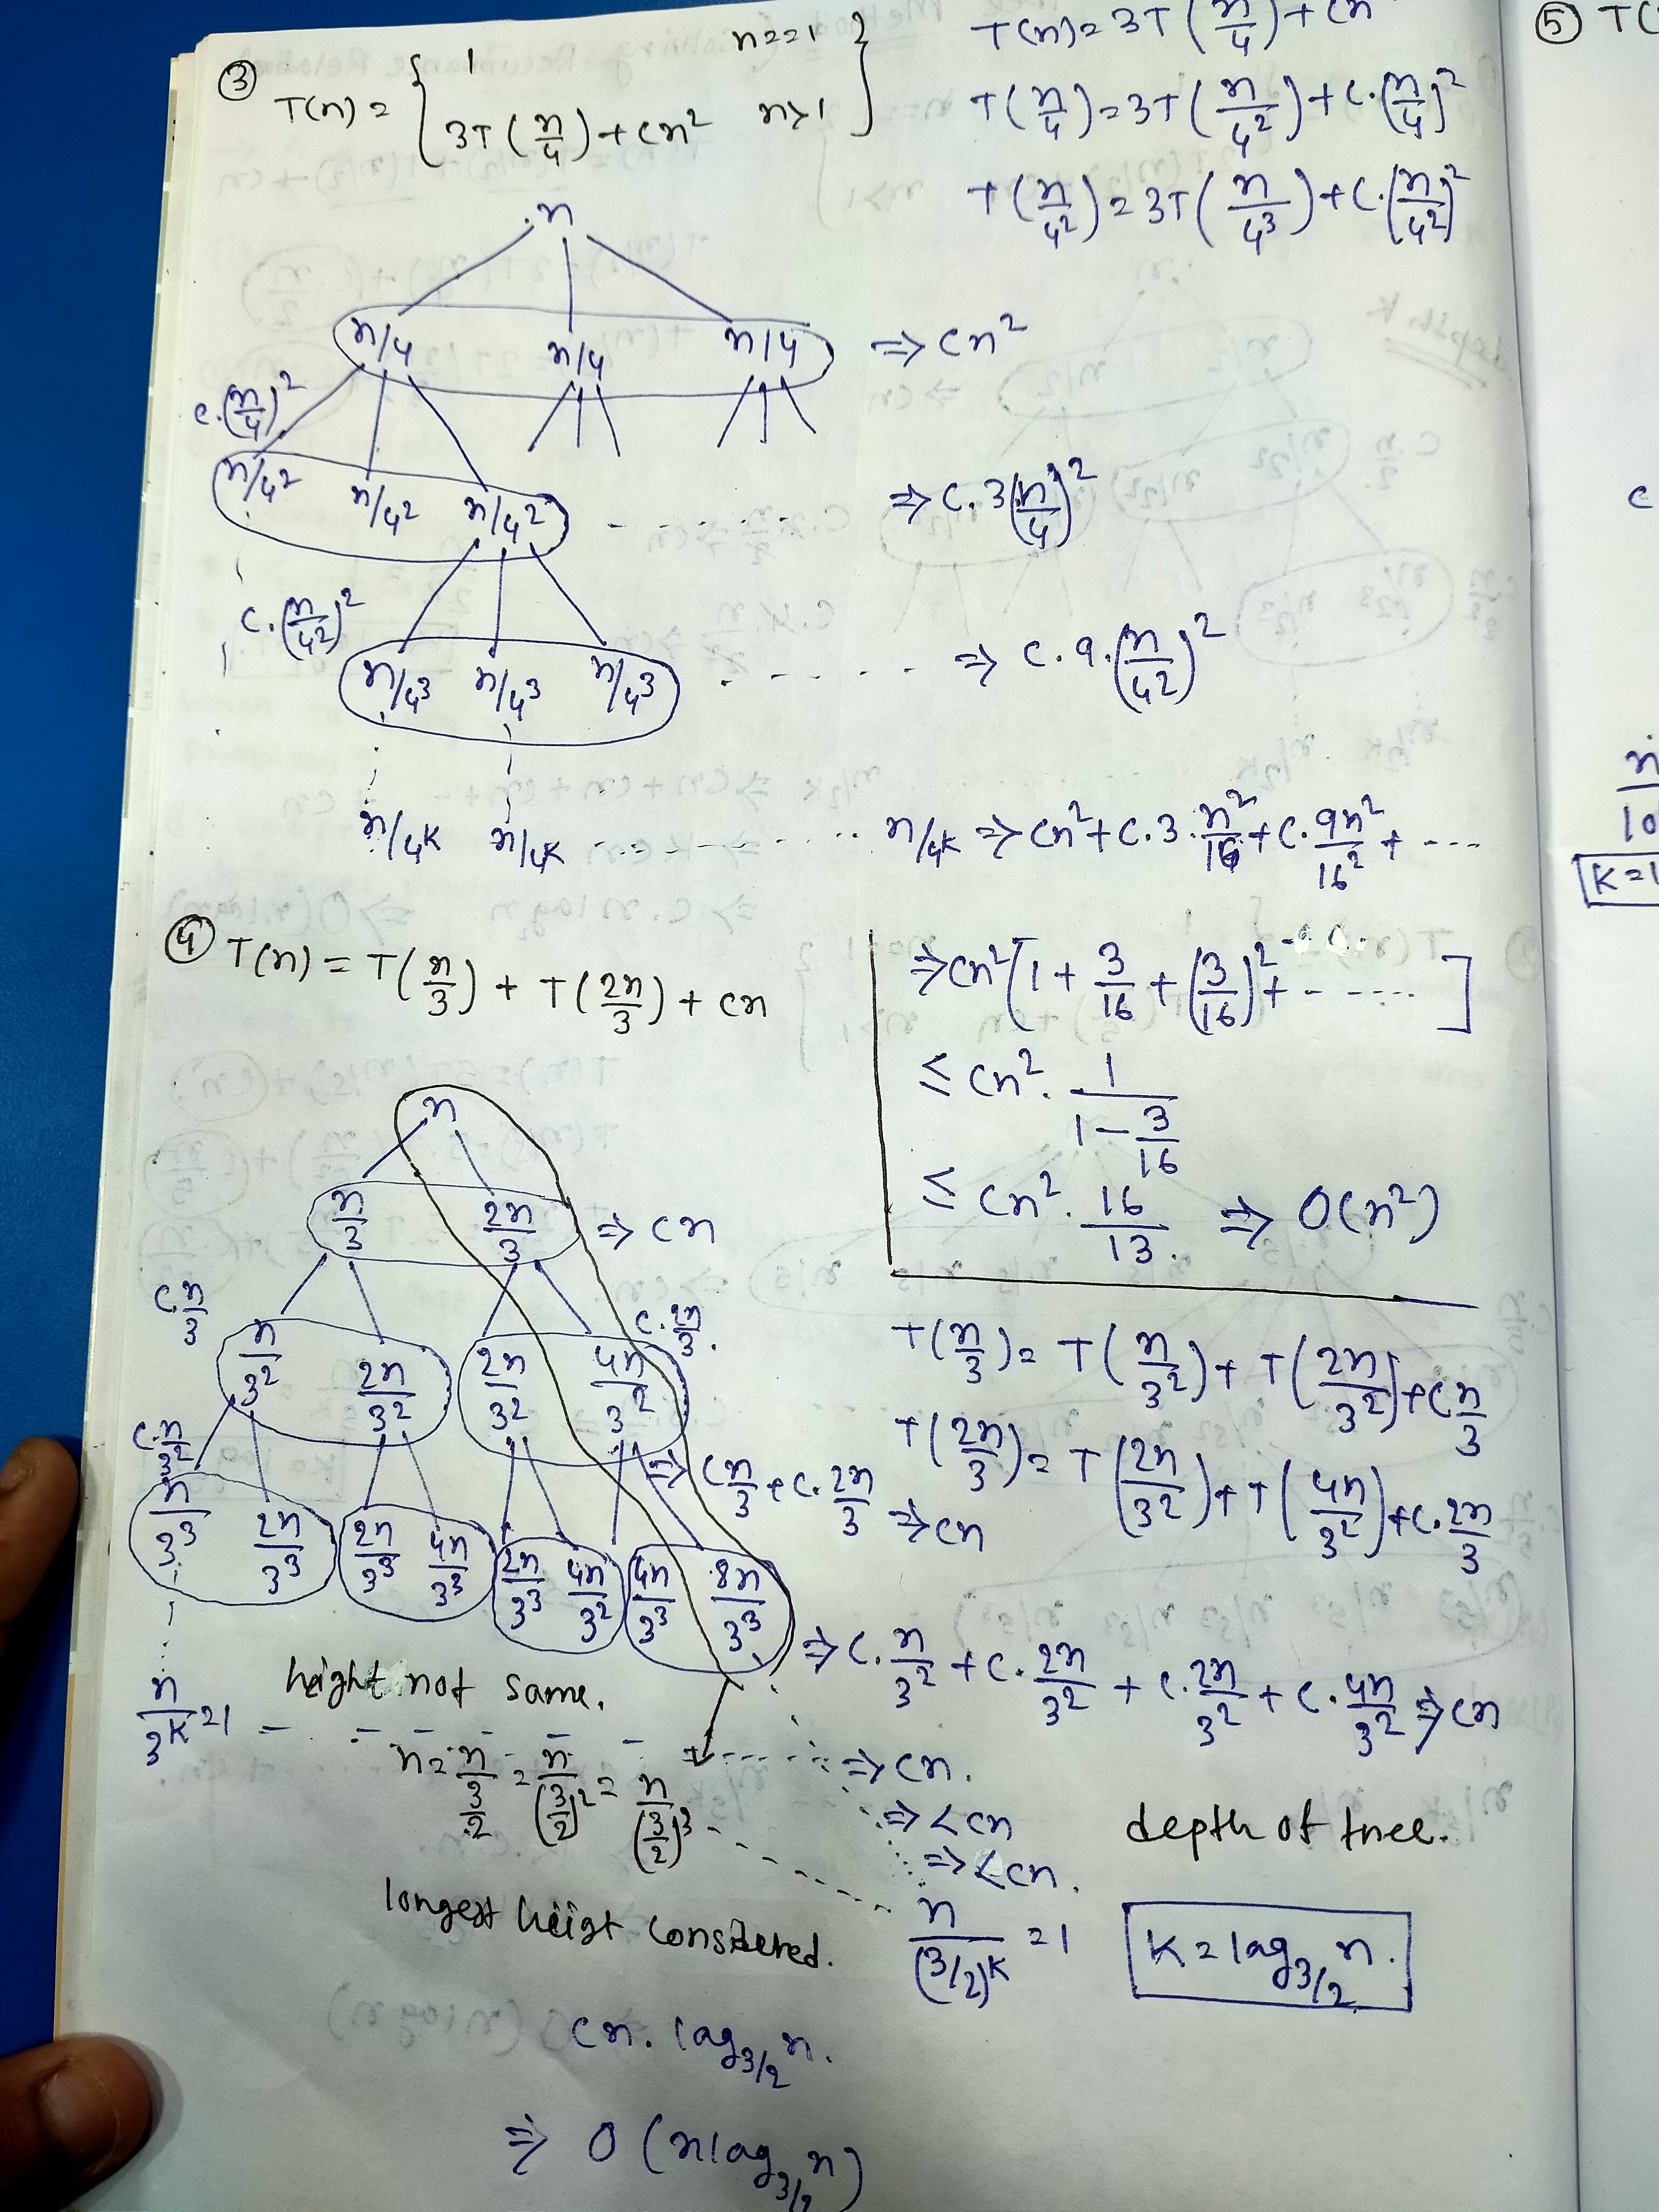 ③ T(n) = { 1 n==1
3T(n/4) + cn² n>1 }
T(n) = 3T(n/4) + cn
T(n/4) = 3T(n/4²) + c.(n/4)²
T(n/4²) = 3T(n/4³) + c.(n/4²)²
n
n/4 n/4 n/4 ⇒ cn²
c.(n/4)²
n/4² n/4² n/4² - - - - - ⇒ c.3(n/4)²
c.(n/4²)²
n/4³ n/4³ n/4³ - - - - - ⇒ c.9.(n/4²)²
n/4ᵏ n/4ᵏ - - - - - n/4ᵏ ⇒ cn² + c.3.n²/16 + c.9n²/16² + ----
⇒ cn²[1 + 3/16 + (3/16)² + - - - - ]
≤ cn². 1/(1 - 3/16)
≤ cn². 16/13 ⇒ O(n²)
④ T(n) = T(n/3) + T(2n/3) + cn
n
n/3 2n/3 ⇒ cn
c.n/3 c.2n/3.
n/3² 2n/3² 2n/3² 4n/3²
⇒ cn/3 + c.2n/3 ⇒ cn
c.n/3²
n/3³ 2n/3³ 2n/3³ 4n/3³ 2n/3³ 4n/3² 4n/3³ 8n/3³
⇒ c.n/3² + c.2n/3² + c.2n/3² + c.4n/3² ⇒ cn
T(n/3) = T(n/3²) + T(2n/3²) + cn/3
T(2n/3) = T(2n/3²) + T(4n/3²) + c.2n/3
height not same.
n/3ᵏ = 1 - - - - - - ⇒ cn.
n = n/(3/2) = n/(3/2)² = n/(3/2)³ - - - -
⇒ <cn
⇒ <cn.
n/(3/2)ᵏ = 1
depth of tree.
K = log₃/₂ n.
longest heigt considered.
cn. log₃/₂ n.
⇒ O(n log₃/₂ n)
⑤ T(
c
n
10
K=1